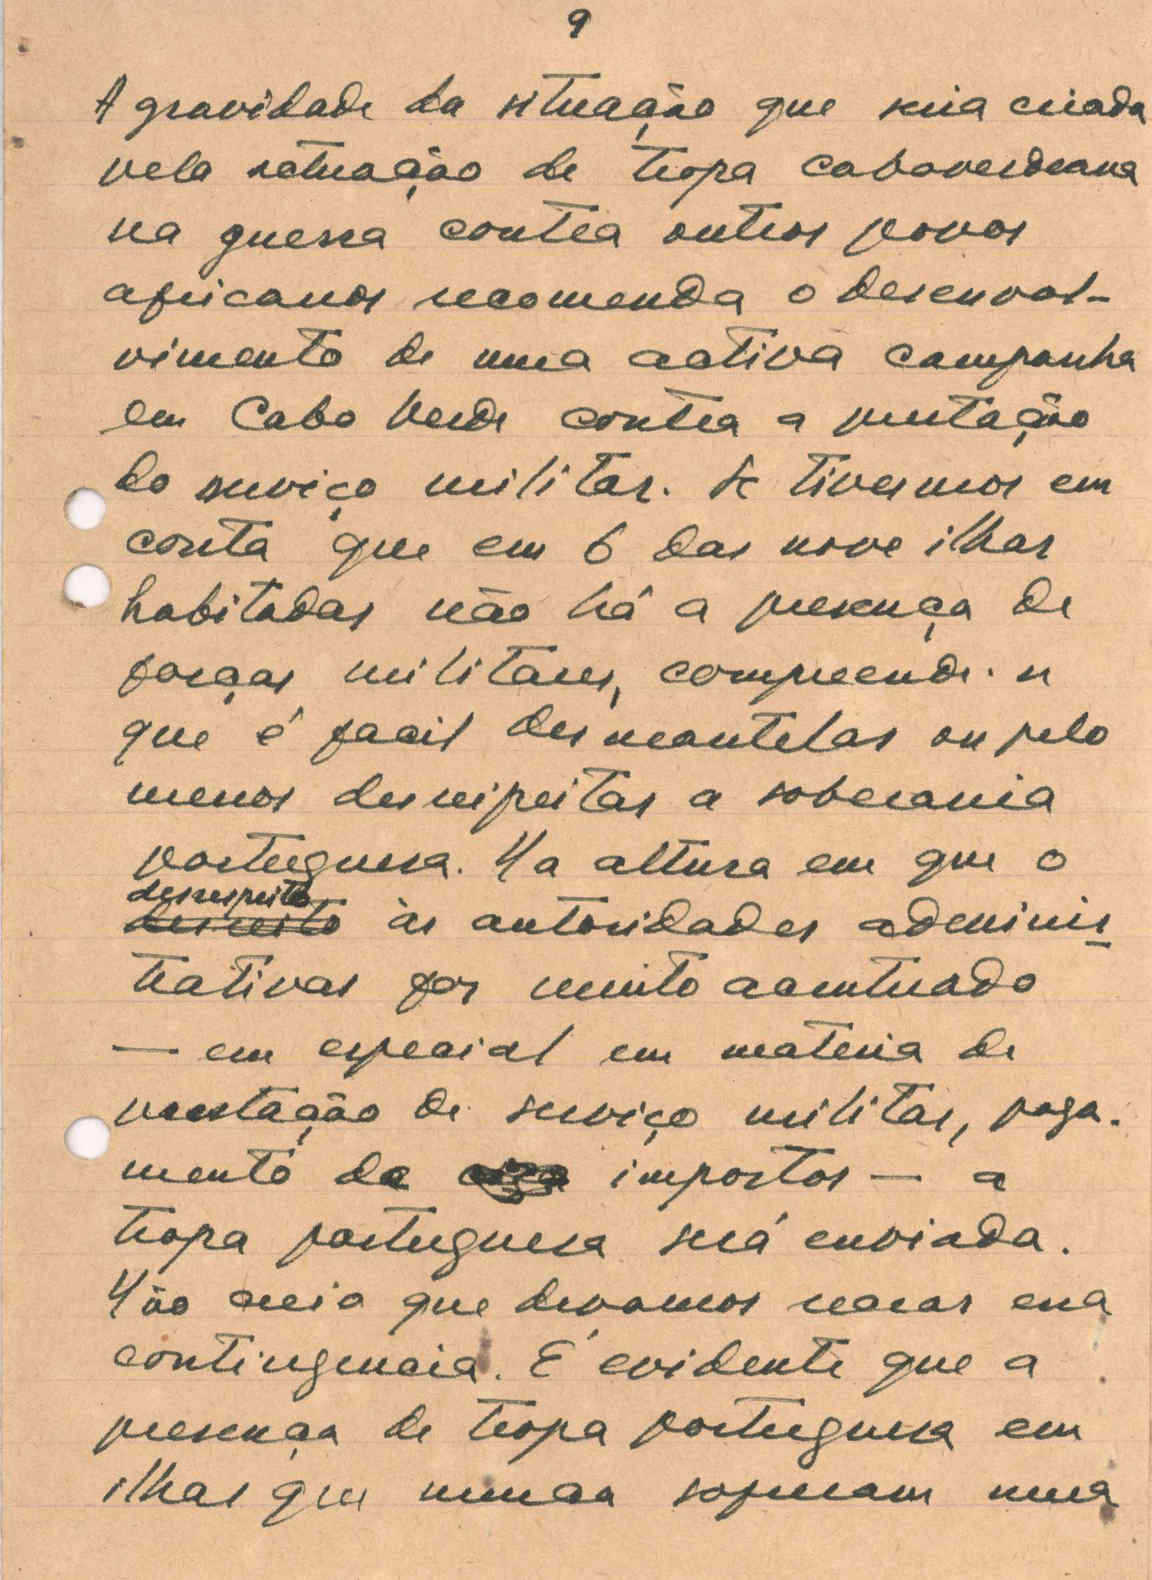 9
A gravidade da situação que seria criada
pela actuação de tropa caboverdeana
na guerra contra outros povos
africanos recomenda o desenvol-
vimento de uma activa campanha
em Cabo Verde contra a prestação
do serviço militar. Se tivermos em
conta que em 6 das nove ilhas
habitadas não há a presença de
forças militares, compreende-se
que é facil desmantelar ou pelo
menos desrespeitar a soberania
portuguesa. Na altura em que o
desrespeito
às autoridades adminis-
trativas for muito acentuado
— em especial em materia de
prestação de serviço militar, paga-
mento de impostos — a
tropa portuguesa será enviada.
Não creio que devamos recear essa
contingencia. É evidente que a
presença de tropa portuguesa em
ilhas que nunca sofreram uma